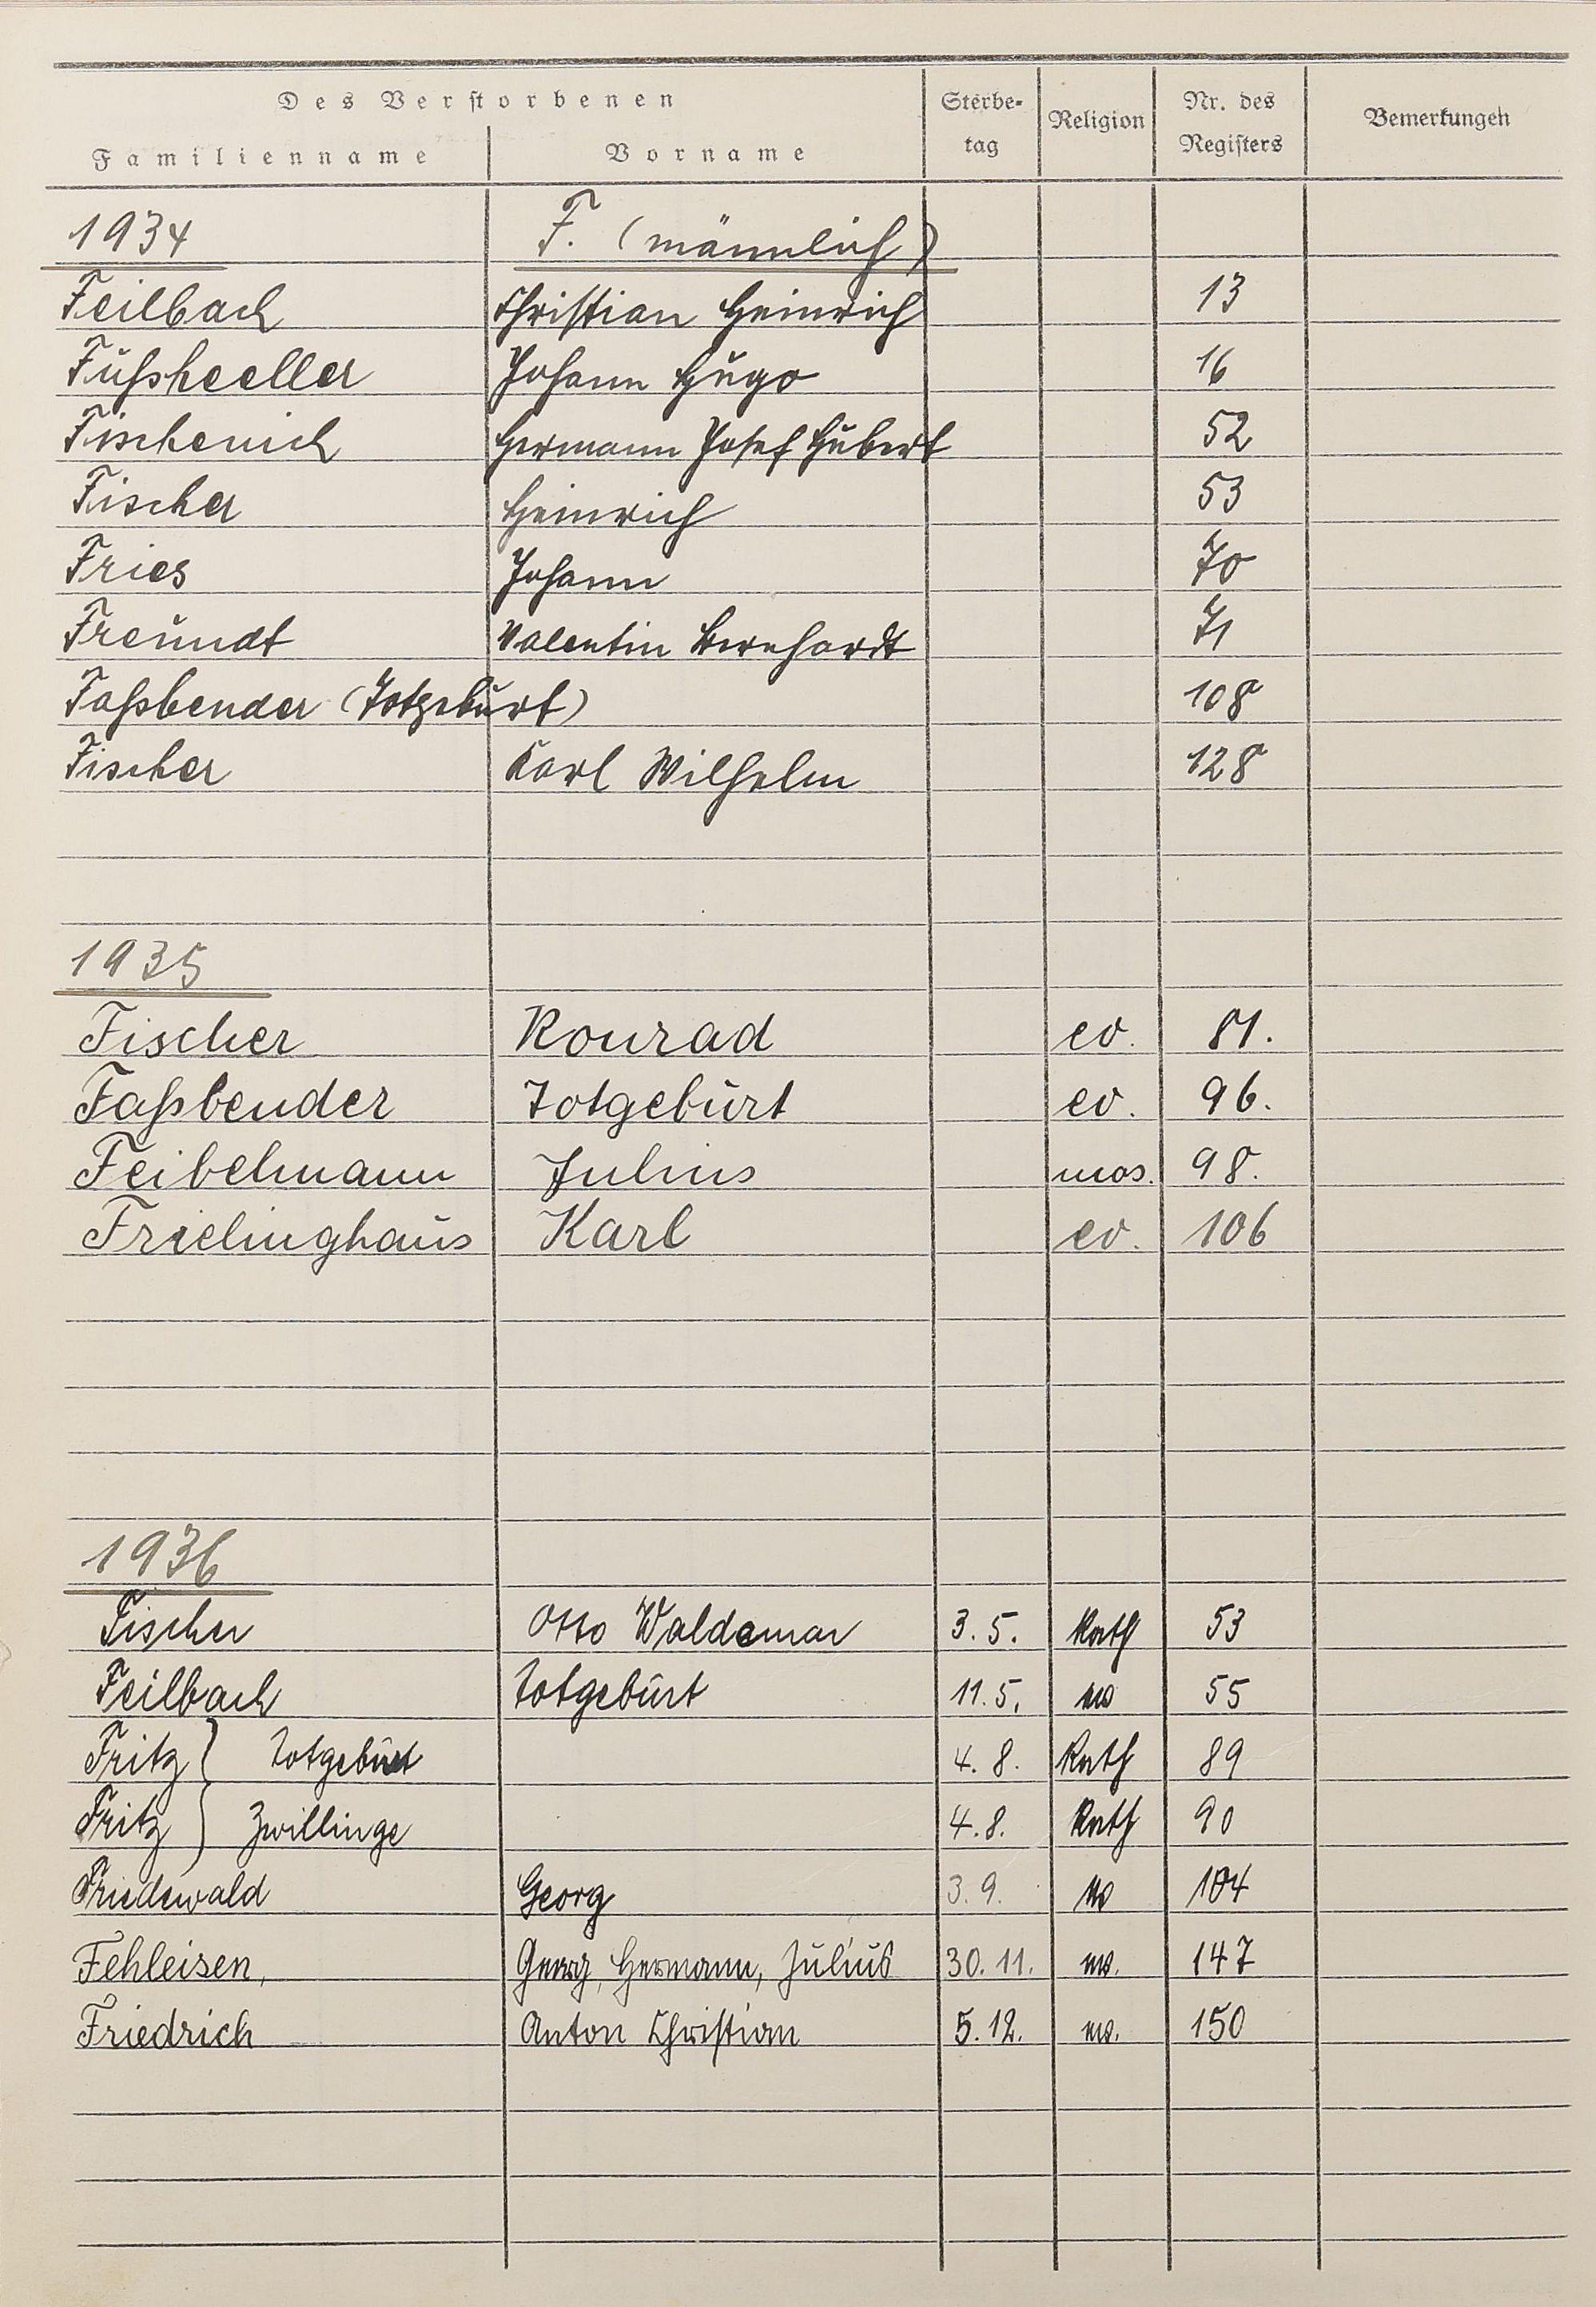 Des Verstorbenen
Familienname Vorname Sterbe-tag Religion Nr. des Registers Bemerkungen
1934 F. (männlich)
Feilbach Christian Heinrich 13
Fußhoeller Johann Hugo 16
Fischenich Hermann Josef Hubert 52
Fischer Heinrich 53
Fries Johann 70
Freundt Valentin Bernhardt 71
Faßbender (Totgeburt) 108
Fischer Karl Wilhelm 128
1935
Fischer Konrad ev. 81.
Faßbender Totgeburt ev. 96.
Feibelmann Julius mos. 98.
Frielinghaus Karl ev. 106
1936
Fischer Otto Waldemar 3.5. Kath 53
Feilbach Totgeburt 11.5. ev 55
Fritz } Totgeburt 4.8. Kath 89
Fritz } Zwillinge 4.8. Kath 90
Friedewald Georg 3.9. ev 104
Fehleisen, Georg, Hermann, Julius 30.11. ev. 147
Friedrich Anton Christian 5.12. ev. 150